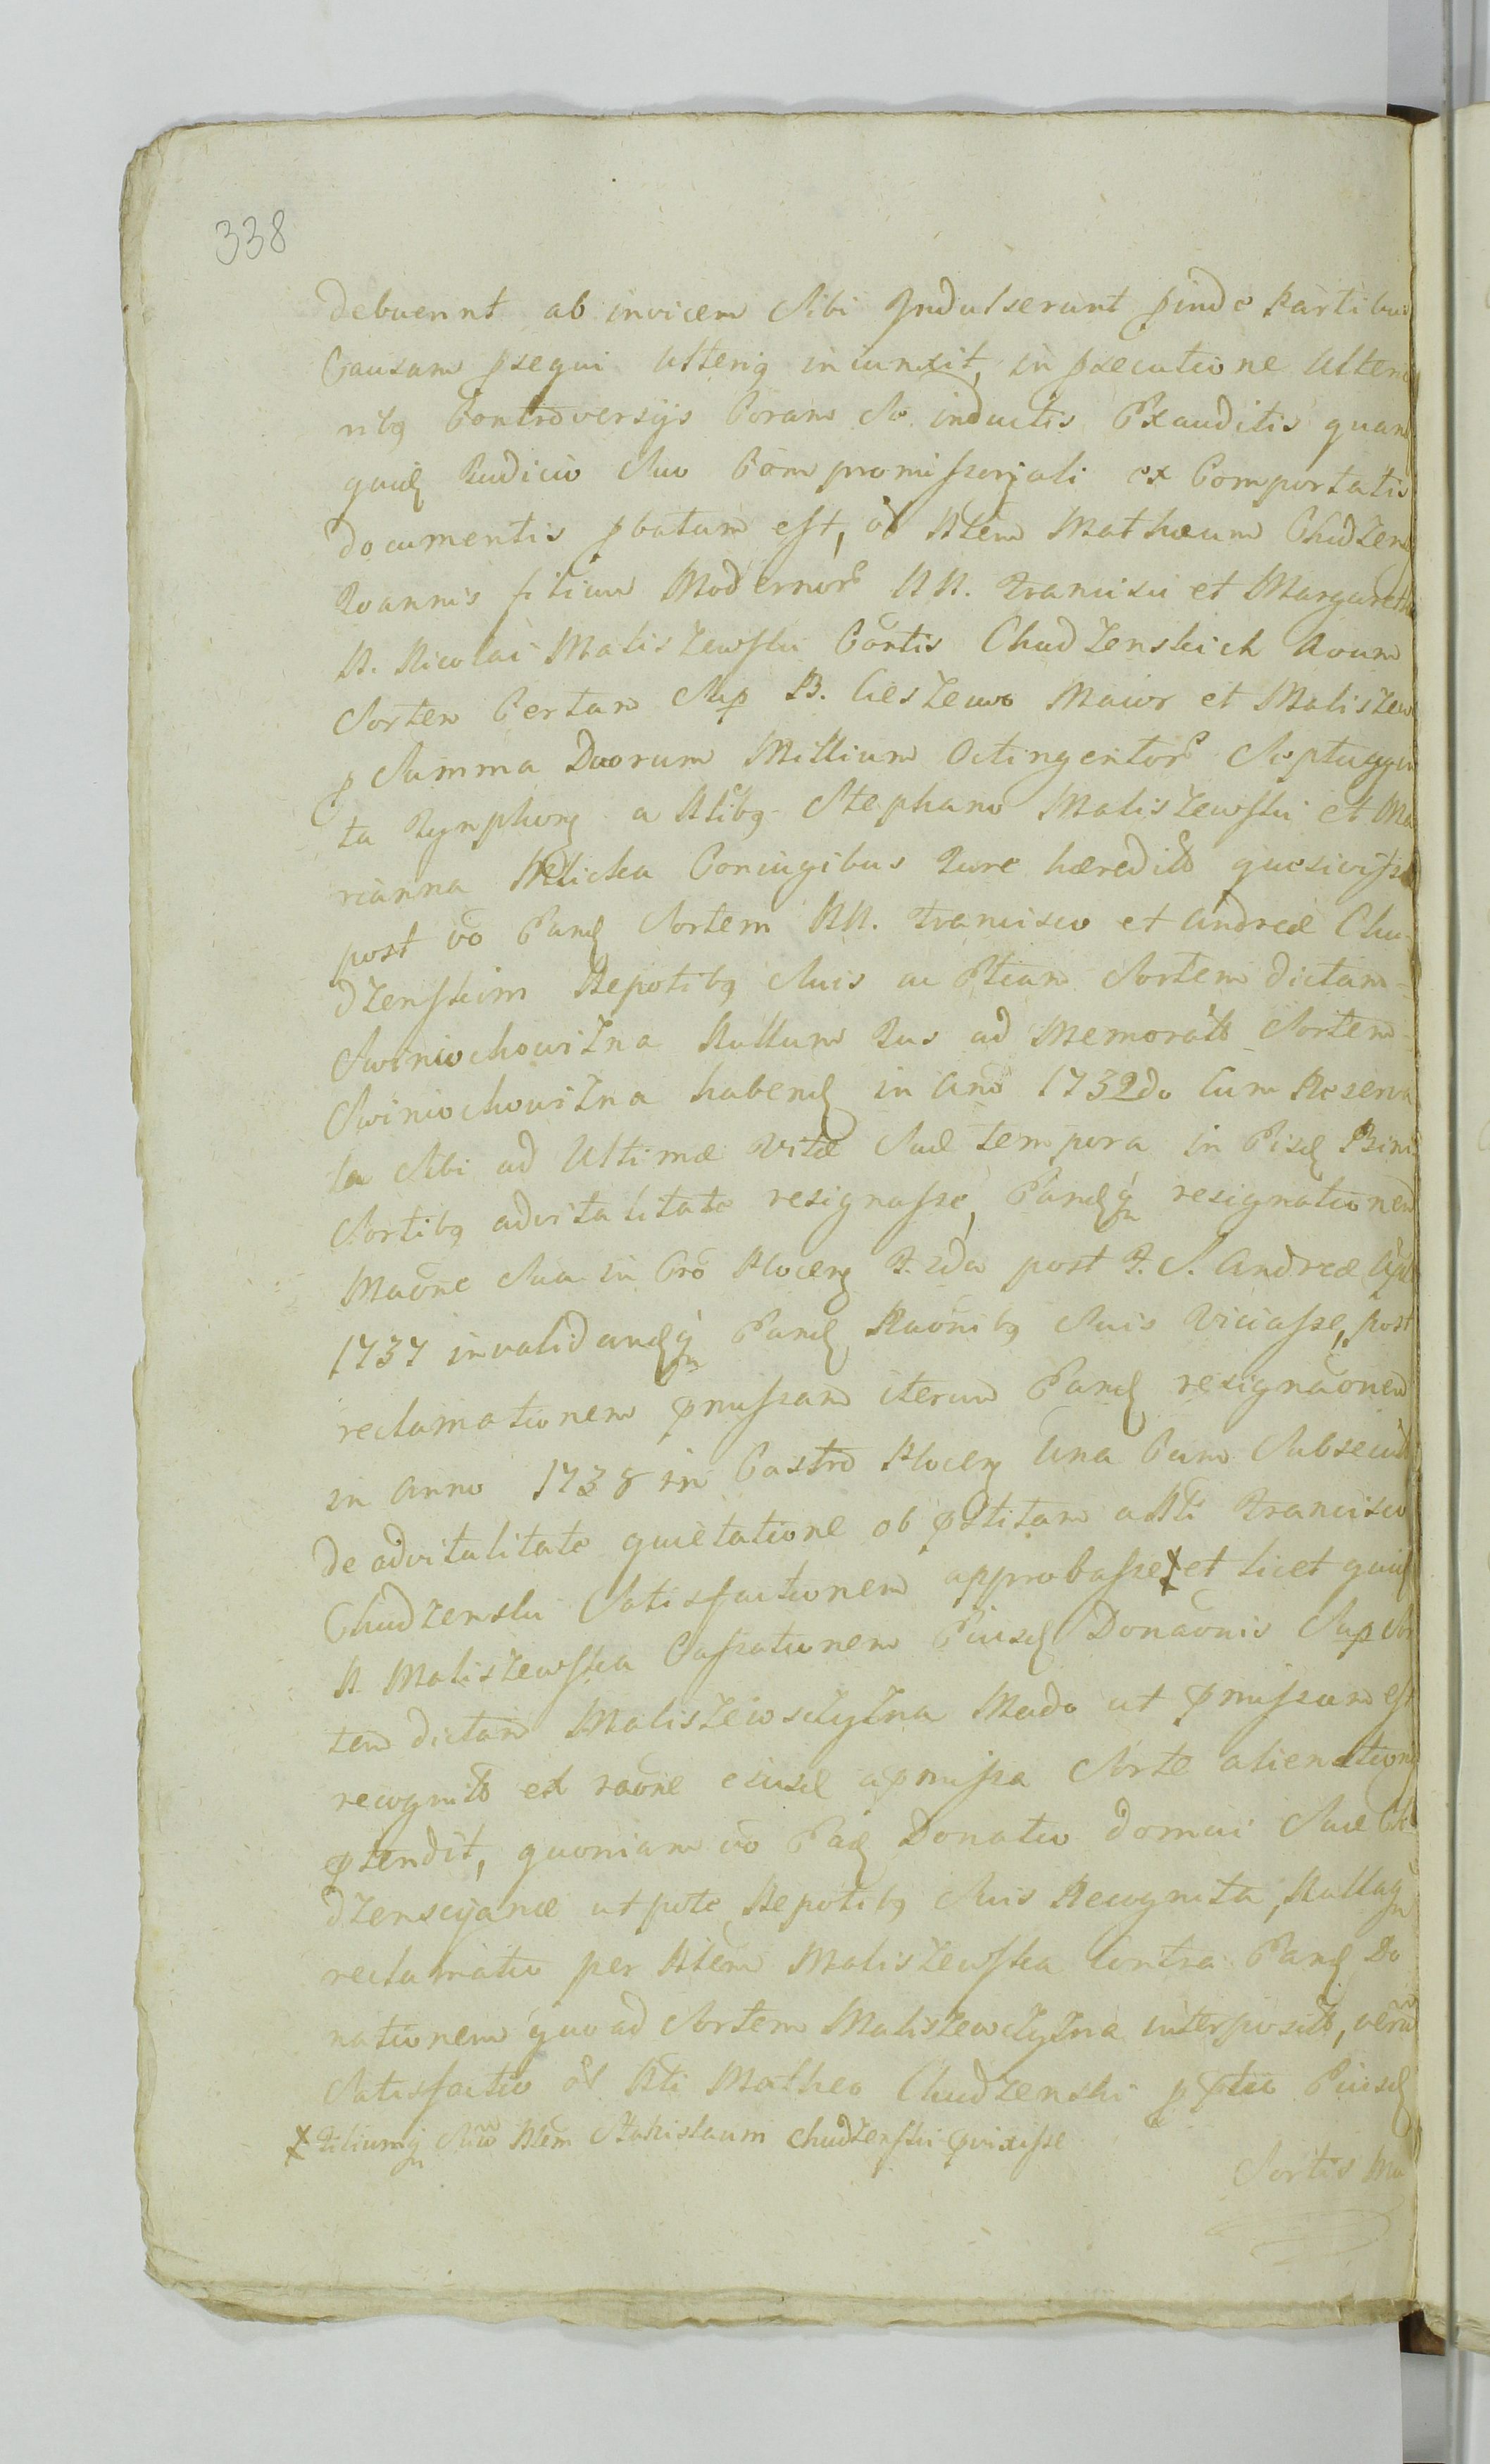 338
debuerint ab invicem Sibi Indulserunt proinde Partibus
Causam psequi Ulterig iniunxit, in psecutione Ulterio
ribg Controversijs Coram Se inductis Exauditis quan
quid Judicio Suo Compromissorjali ex Comportatis
documentis pbatum est, Nlem Mathæum Chudzens
Joannis filium Modernor NN. Francisci et Margaretha
N. Nicolai Maliszewski Cortis Chudzenskich Avum
Sortem Certam Sup B. Cieszewo Maior et Maliszew
p Summa Duorum Millium Octingentor Septuagin
ta Tynphorg a Nlibg Stephano Maliszewski et Ma
rianna Conjugibus Jure hæredit quesivisse
post vo Eand Sortem NN. Francisco et Andreæ Chu-
dzenskim Nepotibg Suis ac Etiam Sortem dictam
Swiniochowizna Nullum Jus ad Memorat Sortem
Swiniochowizna habend in Ano 1732do Cum Reserva
ta Sibi ad Ultimæ Vitæ Suæ tempora in Eisd Binis
Sortibg advitalitate resignasse, Eandq resignationem
Maone Sua in Cro Plocen F. 2da post F. S. Andreæ Apli
1737 invalidandq Eand Raonibg Suis Viciasse, post
reclamationem pmissam iterum Eand resignaonem
in Anno 1738 in Castro Plocen Una Cum Subsecut
de advitalitate quietatione ob pstitam a Nli Francisco
Chudzenski Satisfactionem approbasse X et licet quid
N Maliszewska Cassationem Eiusd Donaonis Sup Sor
tem dictam Maliszewsczyzna Modo ut pmissum est
recognit et raone eiusd a pmissa Sorte alienationis
ptendit, quoniam vo Ead Donatio domui Suæ Chu
dzenscijanæ utpote Nepotibg Suis Recognita, Nullaq
reclamatio per Nlem Maliszewska Contra Eand Do
nationem quoad Sortem Maliszewczyzna interposit, verum
Satisfactio Nli Matheo Chudzenski p ptio Eiusd
X Filiumq Suum Nlem Stanislaum Chudzenski pvixisse
Sortis Ma